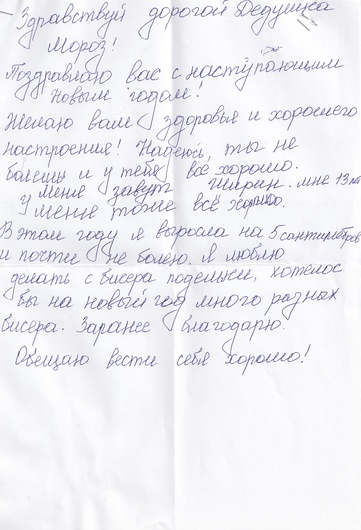 Здравствуй дорогой Дедушка
Мороз!
Поздравляю вас с наступающим
Новым годом!
Желаю вам здоровья и хорошего
настроения! Надеюсь, ты не
болеешь и у тебя всё хорошо.
Меня завут Ширин. мне 13 лет
У меня тоже всё хорошо.
В этом году я выросла на 5 сантиметров
и почти не болею. Я люблю
делать с бисера поделки, хотелос
бы на новый год много разных
бисера. Заранее благодарю.
Обещаю вести себя хорошо!